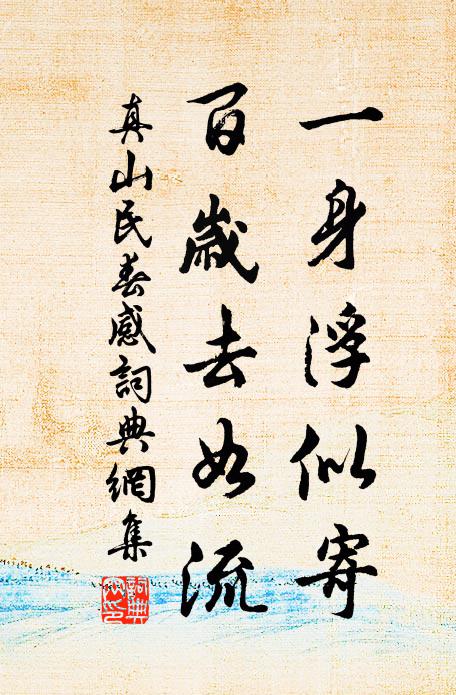 一身浮似寄
百歲去如流
真山民春感詞典網集